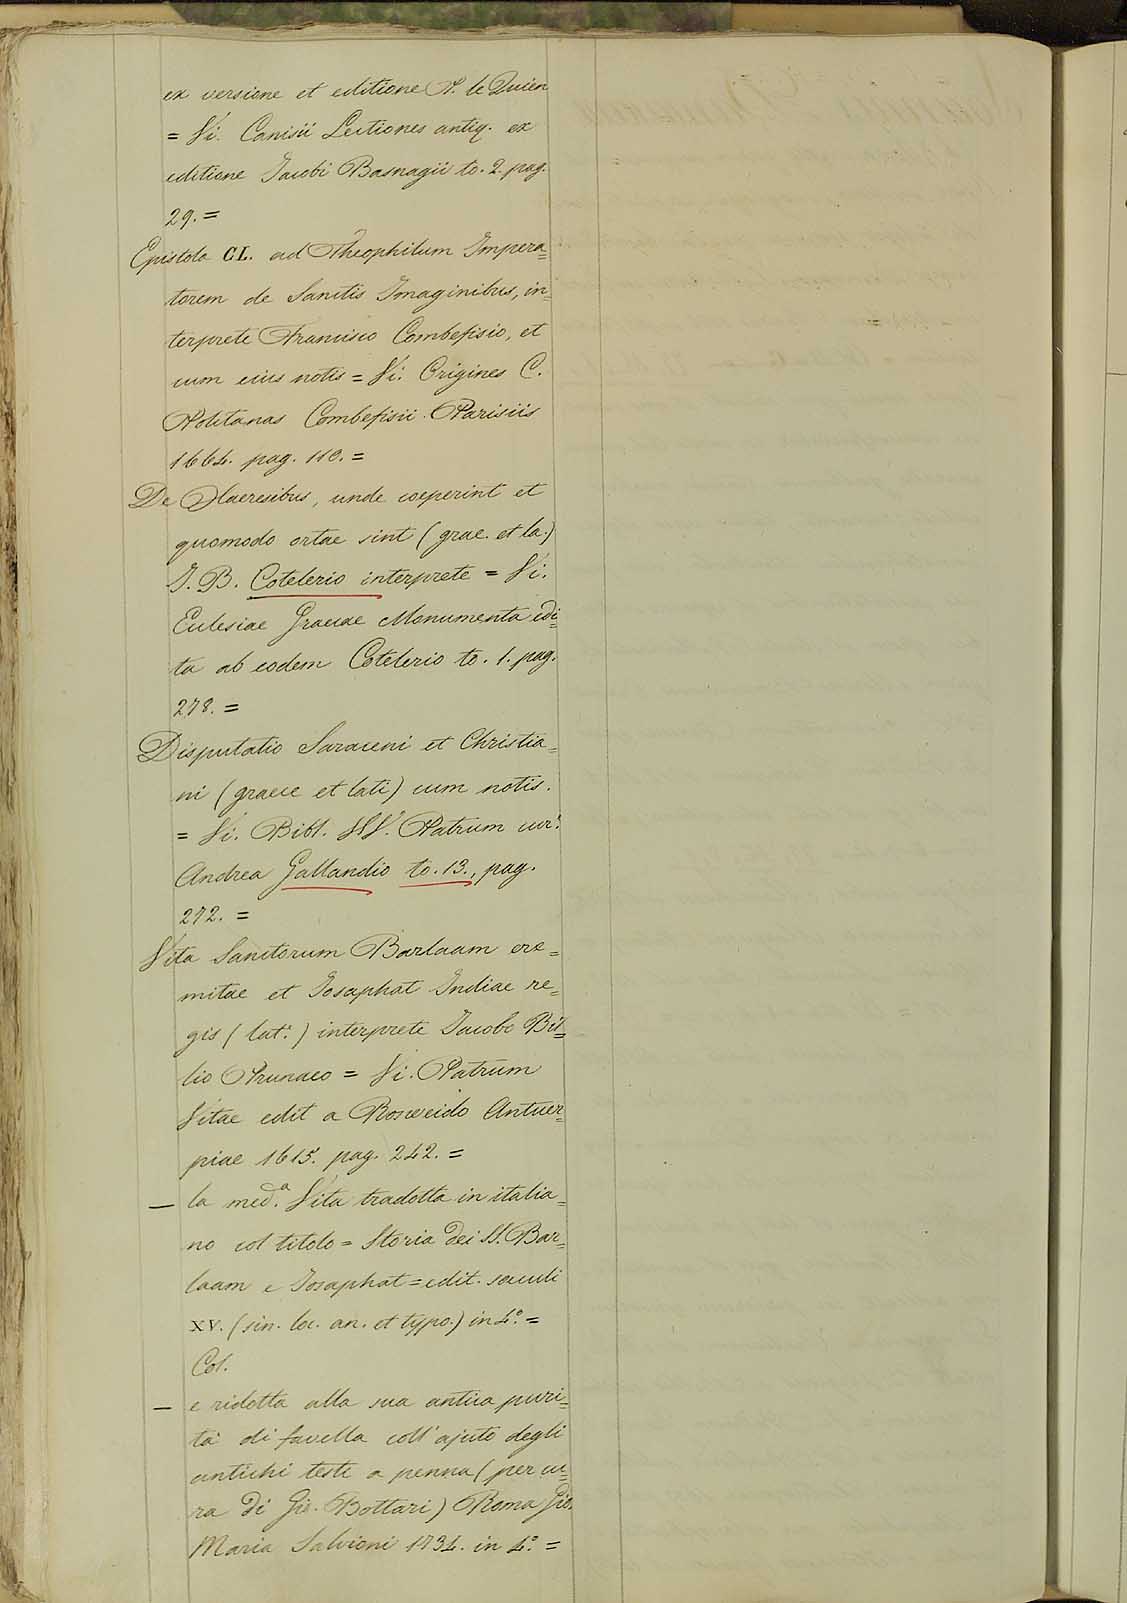 ex versione et editione P. le Quien
= Vi. Canisii Lectiones antiq. ex
editione Jacobi Basnagii to. 2. pag.
29. =
Epistola CL. ad Theophilum Impera=
torem de Sanctis Imaginibus, in=
terprete Francisco Combefisio, et
cum eius notis = Vi. Origines C.
Politanas Combefisii. Parisiis
1664. pag. 110. =
De Haeresibus, unde coeperint et
quomodo ortae sint (grae. et la.)
J. B. Cotelerio interprete = Vi.
Eclesiae Graecae Monumenta edi=
ta ab eodem Cotelerio to. 1. pag.
278. =
Disputatio Saraceni et Christia=
ni (graece et lati) cum notis.
= Vi. Bibl. SS. Patrum cur.
Andrea Gallandio to. 13., pag.
272. =
Vita Sanctorum Barlaam ere=
mitae et Josaphat Indiae re=
gis (lat.) interprete Jacobo Bil=
lio Prunaeo = Vi. Patrum
Vitae edit a Rosweido Antuer=
piae 1615. pag. 242. =
— la med.a Vita tradotta in italia=
no col titolo = Storia dei SS. Bar=
laam e Josaphat = edit. saeculi
XV. (sin. loc. an. et typo.) in 4.o =
Col.
— e ridotta alla sua antica puri=
tà di favella coll'ajuto degli
antichi testi a penna (per cu=
ra di Gio. Bottari) Roma Gio.
Maria Salvioni 1734. in 4.o =